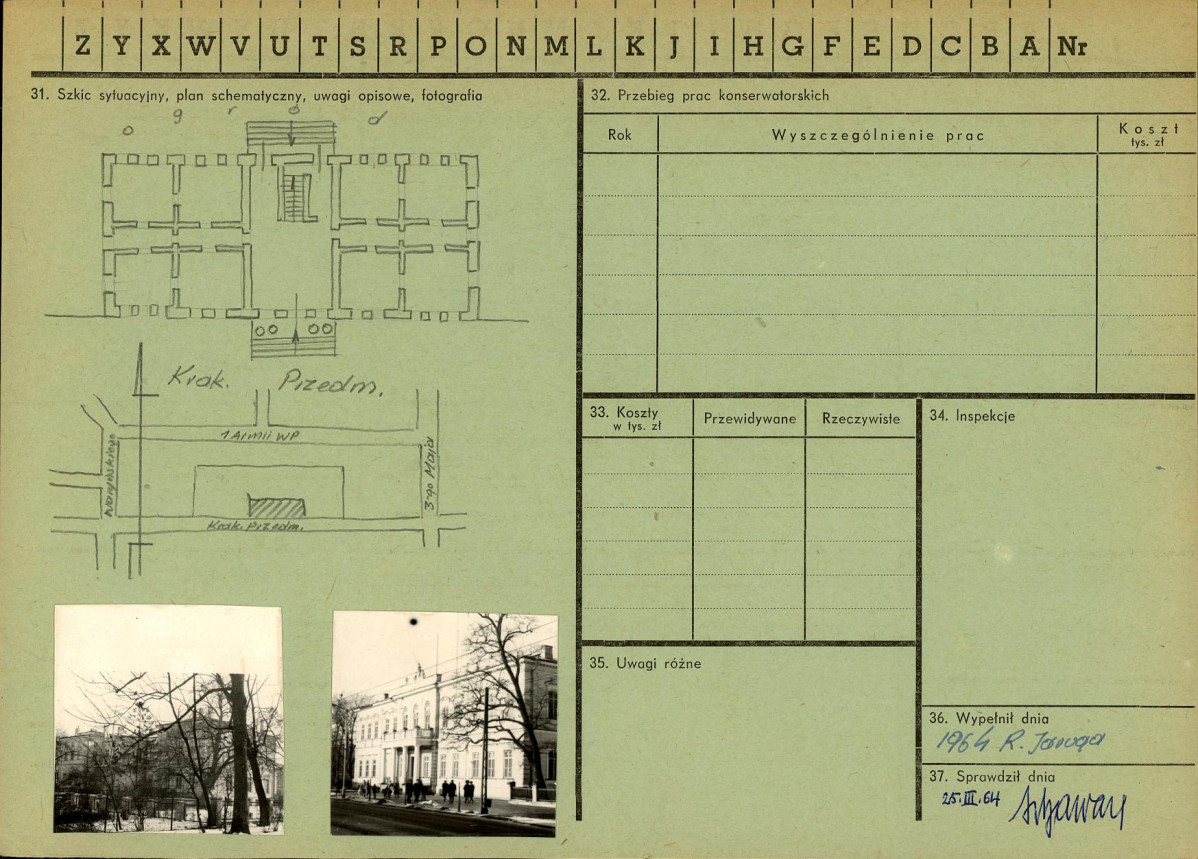 Z Y X W V U T S R P O N M L K J I H G F E D C B A Nr
31. Szkic sytuacyjny, plan schematyczny, uwagi opisowe, fotografia
o g r ó d
Krak. Przedm.
1 Armii WP
3-go Maja
Krak. Przedm.
32. Przebieg prac konserwatorskich
Rok
Wyszczególnienie prac
Koszt
tys. zł
33. Koszty
w tys. zł
Przewidywane
Rzeczywiste
34. Inspekcje
35. Uwagi różne
36. Wypełnił dnia
1964 R.
37. Sprawdził dnia
25.III.64